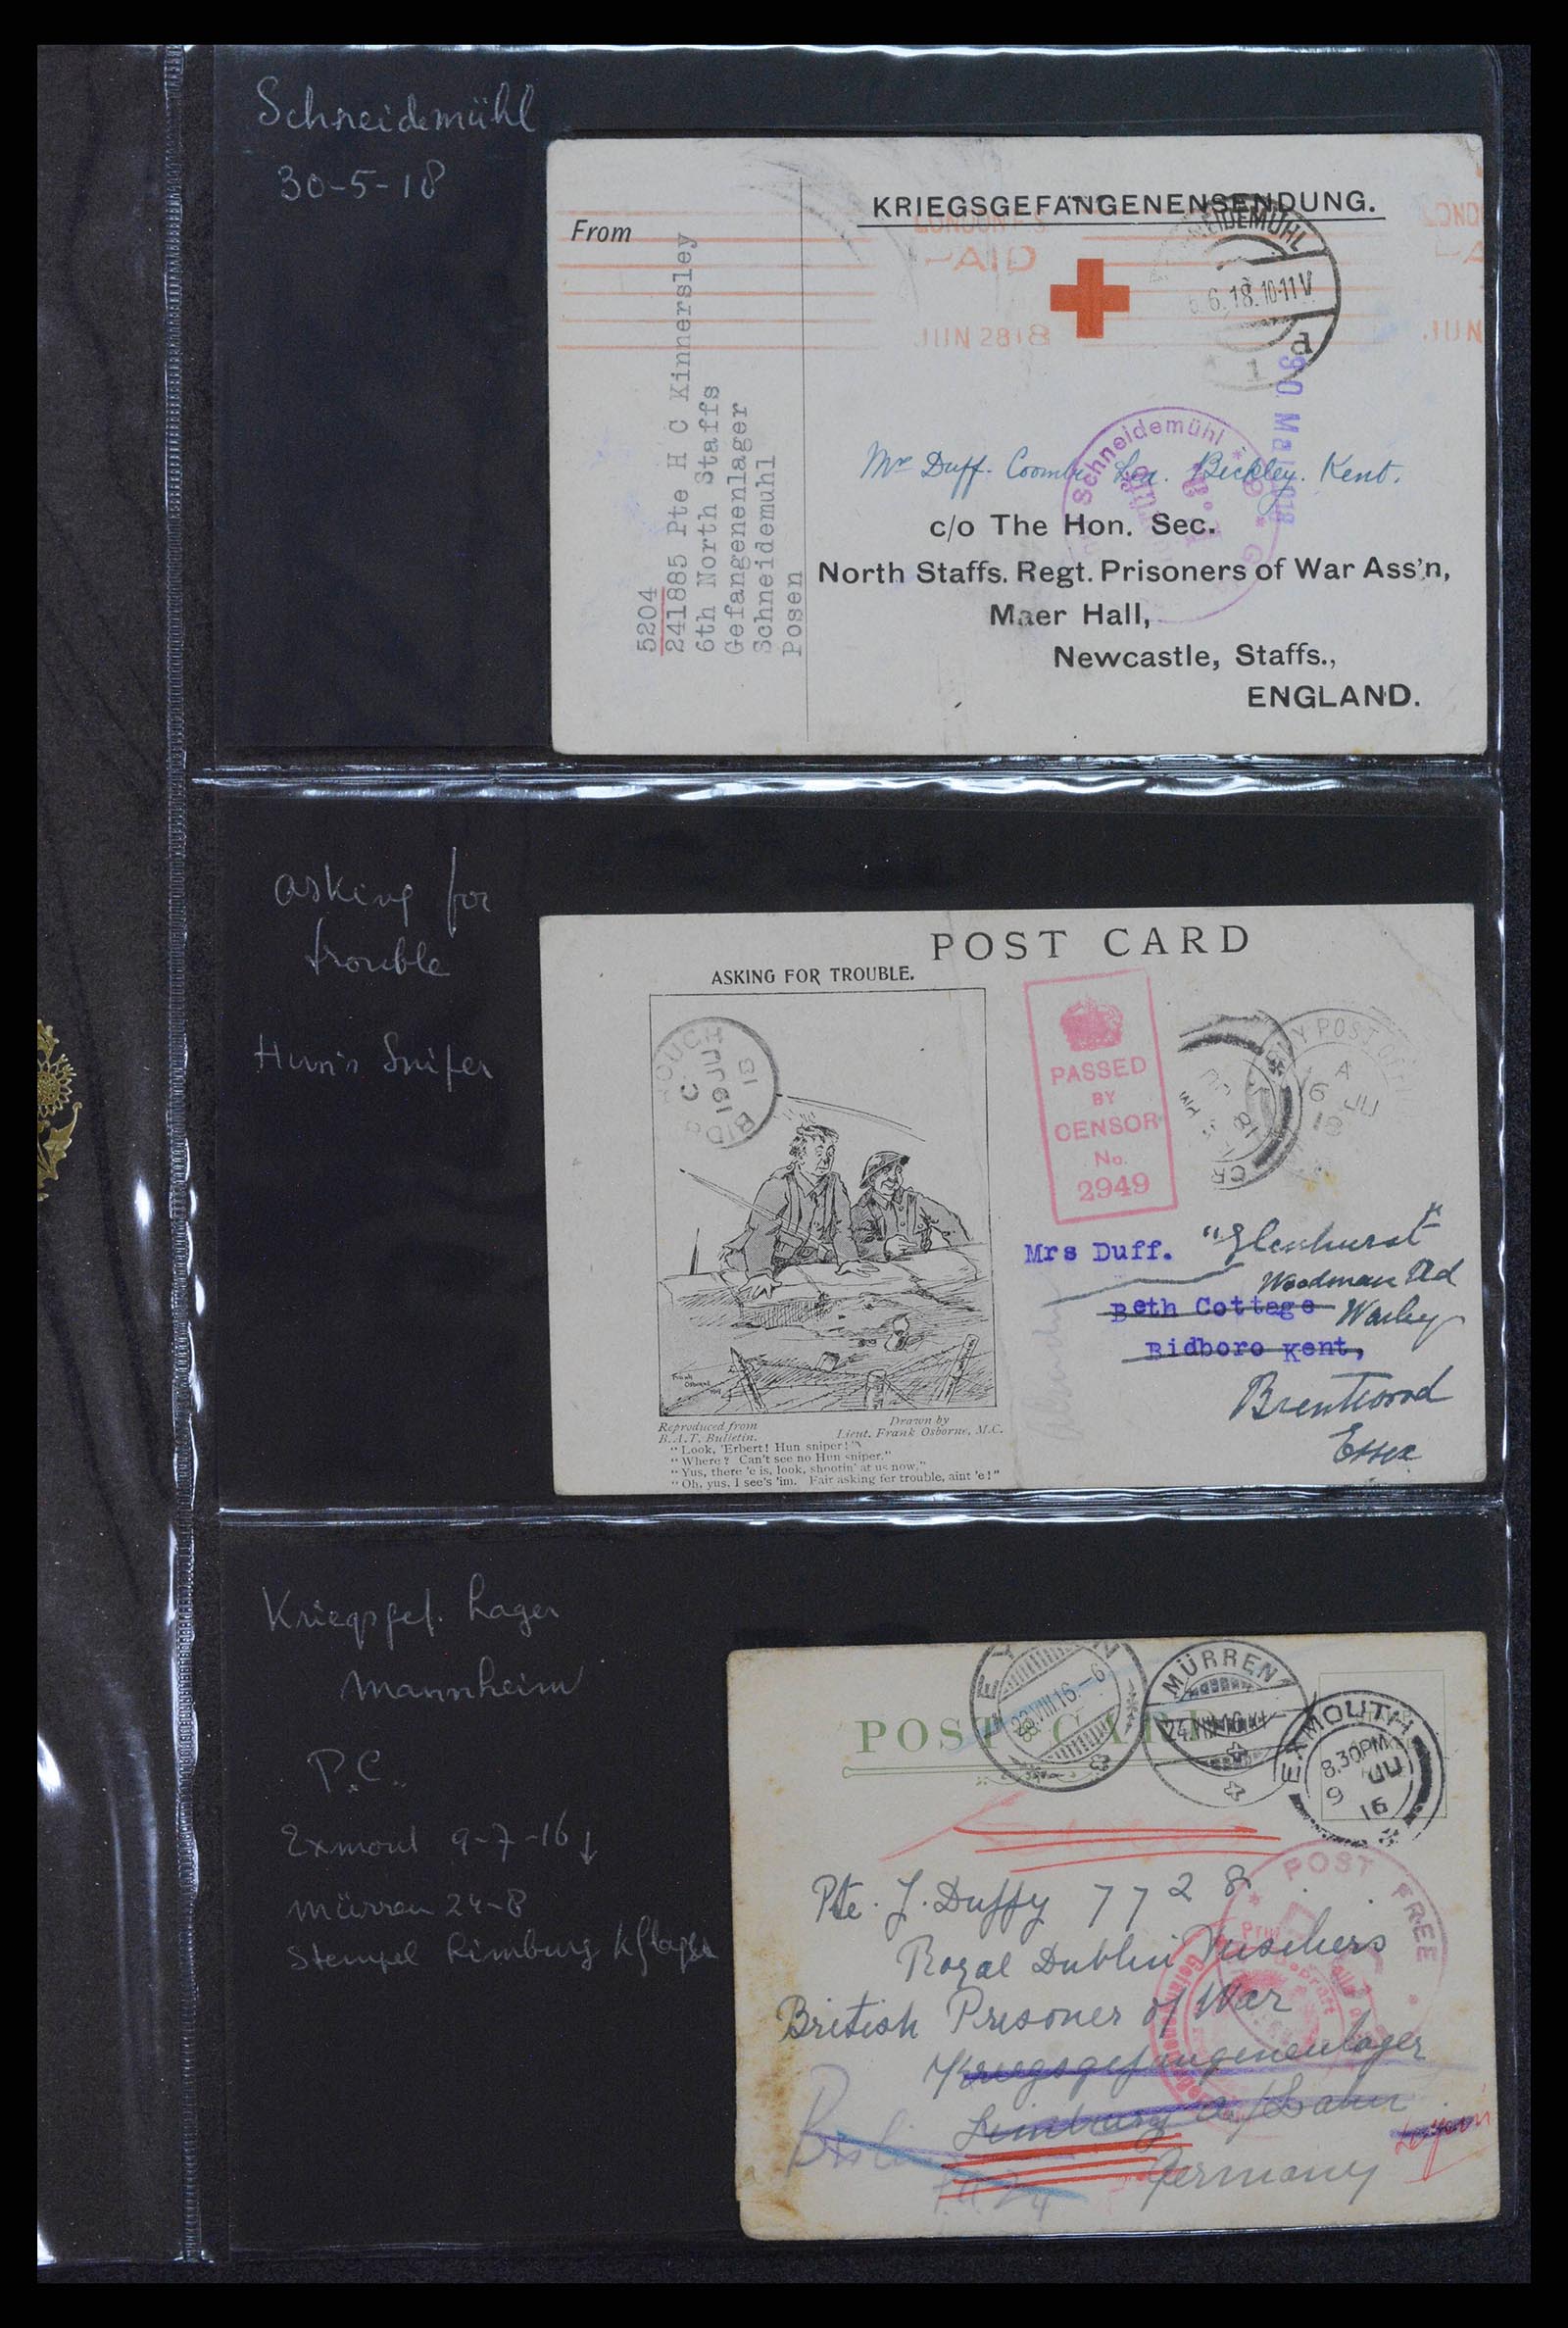 Schneidemühl
30-5-18
KRIEGSGEFANGENENSENDUNG.
From
5204
241885 Pte H C Kinnersley
6th North Staffs
Gefangenenlager
Schneidemuhl
Posen
PAID
JUN 28 18
JUN
6.6.18.10-11V
d
1
30 Mai 1918
Schneidemühl
Mrs Duff. Coombe Lea. Bickley. Kent.
c/o The Hon. Sec.
North Staffs. Regt. Prisoners of War Ass'n,
Maer Hall,
Newcastle, Staffs.,
ENGLAND.
asking for
trouble
Hun's Snifer
POST CARD
ASKING FOR TROUBLE.
C
19 JU
18
PASSED
BY
CENSOR
No.
2949
POST
A
16 JU
18
Mrs Duff.
"Glenhurst"
Woodman Rd
Beth Cottage
Warley
Bidboro Kent,
Brentwood
Essex
Frank
Osborne
Reproduced from
B.A.T. Bulletin.
Drawn by
Lieut. Frank Osborne, M.C.
"Look, 'Erbert! Hun sniper!"
"Where? Can't see no Hun sniper."
"Yus, there 'e is, look, shootin' at us now."
"Oh, yus, I see's 'im. Fair asking fer trouble, aint 'e!"
Kriegsgef. Lager
Mannheim
P.C.
Exmout 9-7-16 ↓
Mürren 24-8
Stempel Limburg
POST CARD
23.VIII.16.-6
MÜRREN
24.VIII.16
EXMOUTH
8.30PM
9 JU
16
POST FREE
Pte. J. Duffy 7728
Royal Dublin Fusiliers
British Prisoner of War
Kriegsgefangenenlager
Limburg a/Lahn
Germany